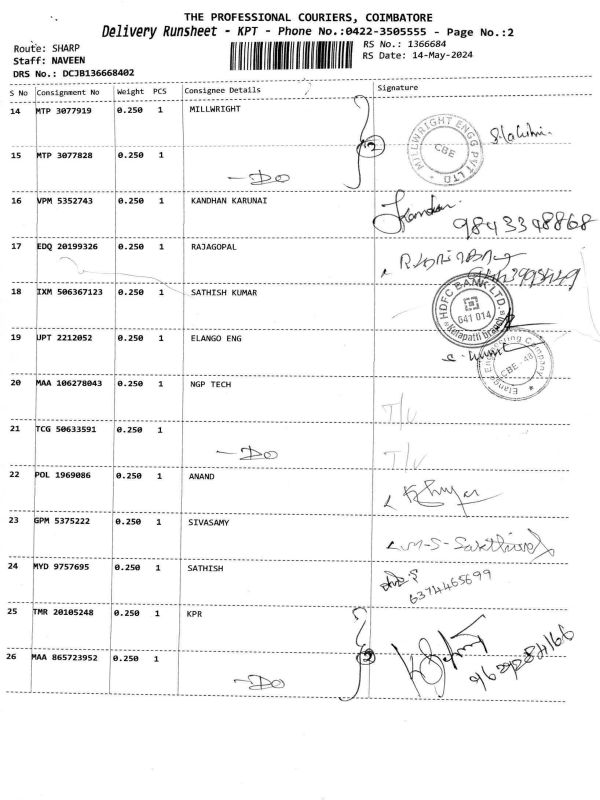 THE PROFESSIONAL COURIERS, COIMBATORE
Delivery Runsheet - KPT - Phone No.:0422-3505555 - Page No.:2
Route: SHARP
Staff: NAVEEN
DRS No.: DCJB136668402
RS No.: 1366684
RS Date: 14-May-2024
S No Consignment No Weight PCS Consignee Details Signature
14 MTP 3077919 0.250 1 MILLWRIGHT
MILLWRIGHT ENGG PVT LTD CBE
15 MTP 3077828 0.250 1
2
- Do
16 VPM 5352743 0.250 1 KANDHAN KARUNAI
Kandhan
9843348868
17 EDQ 20199326 0.250 1 RAJAGOPAL
18 IXM 506367123 0.250 1 SATHISH KUMAR
HDFC BANK LTD. 641 014
19 UPT 2212052 0.250 1 ELANGO ENG
Elango Engineering Company CBE - 48
20 MAA 106278043 0.250 1 NGP TECH
T/V
21 TCG 50633591 0.250 1
- Do
T/V
22 POL 1969086 0.250 1 ANAND
23 GPM 5375222 0.250 1 SIVASAMY
M-S-Sakthivel
24 MYD 9757695 0.250 1 SATHISH
6374465699
25 TMR 20105248 0.250 1 KPR
26 MAA 865723952 0.250 1
2
- Do